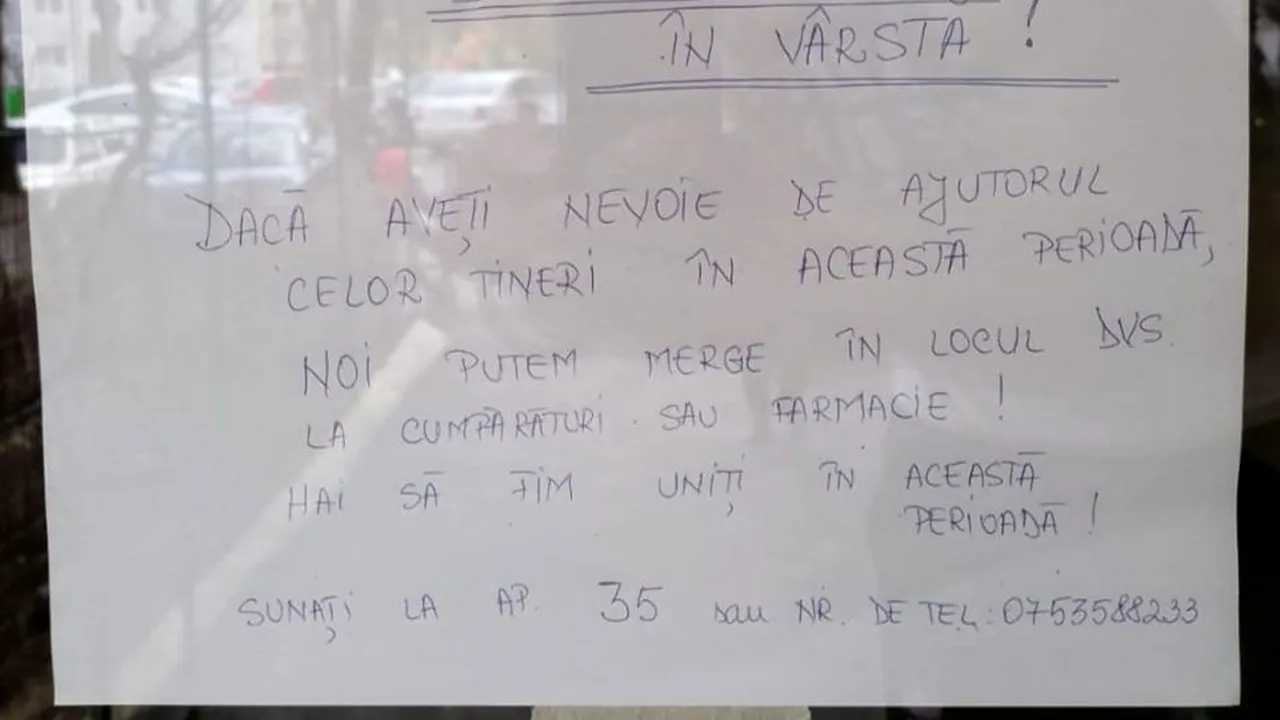 ÎN VÂRSTĂ !
DACĂ AVEȚI NEVOIE DE AJUTORUL
CELOR TINERI ÎN ACEASTĂ PERIOADĂ,
NOI PUTEM MERGE ÎN LOCUL DVS.
LA CUMPĂRĂTURI SAU FARMACIE !
HAI SĂ FIM UNIȚI ÎN ACEASTĂ
PERIOADĂ !
SUNAȚI LA AP. 35 sau NR. DE TEL: 0753588233